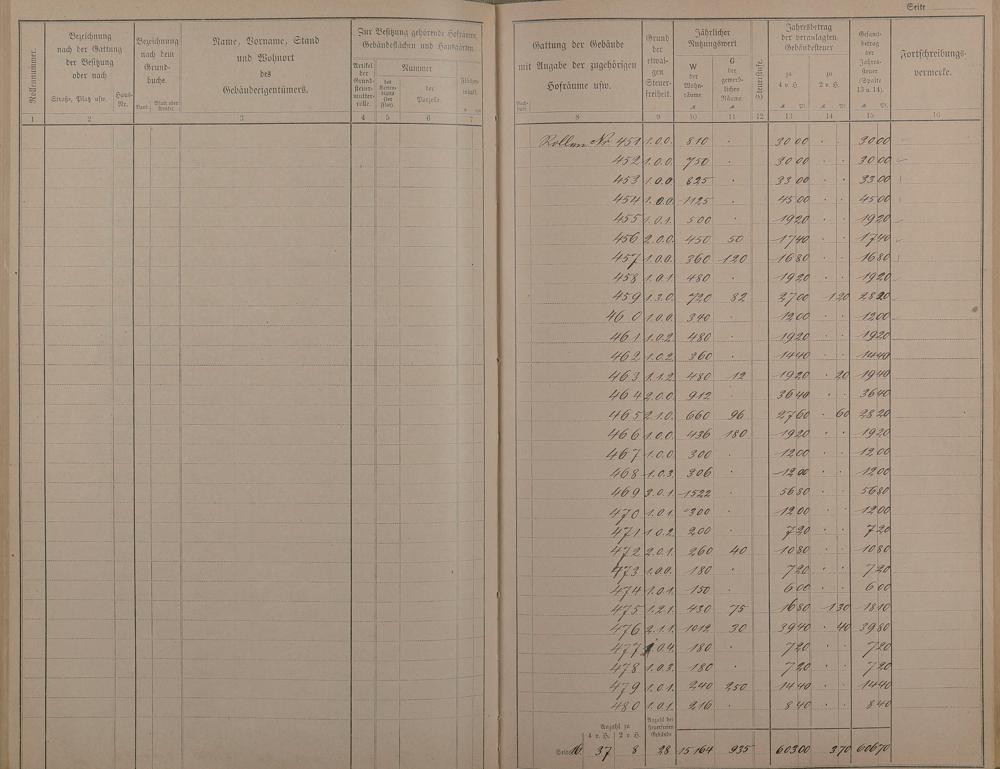 Seite
Rollennummer.
Bezeichnung
nach der Gattung
der Besitzung
oder nach
Straße, Platz usw.
Haus-
Nr.
Bezeichnung
nach dem
Grund-
buche.
Band
Blatt oder
Artikel.
Name, Vorname, Stand
und Wohnort
des
Gebäudeeigentümers.
Zur Besitzung gehörende Hofräume,
Gebäudeflächen und Hausgärten.
Artikel
der
Grund-
steuer-
mutter-
rolle.
Nummer
des
Karten-
blatts
der
Parzelle.
Flächen-
inhalt.
1 2 3 4 5 6 7
Gattung der Gebäude
mit Angabe der zugehörigen
Hofräume usw.
Grund
der
etwai-
gen
Steuer-
freiheit.
Jährlicher
Nutzungswert
W
der
Wohn-
räume.
G
der
gewerb-
lichen
Räume.
Steuerstufe.
Jahresbetrag
der veranlagten
Gebäudesteuer
zu
4 v. H.
zu
2 v. H.
Gesamt-
betrag
der
Jahres-
steuer
(Spalte
13 u. 14).
Fortschreibungs-
vermerke.
8 9 10 11 12 13 14 15 16
Rollen Nr 451 1.0.0. 810 . 30 00 . . 30 00
452 1.0.0. 750 . 30 00 . . 30 00
453 1.0.0. 825 . 33 00 . . 33 00
454 1.0.0. 1125 . 45 00 . . 45 00
455 1.0.1. 500 . 19 20 . . 19 20
456 2.0.0. 450 50 17 40 . . 17 40
457 1.0.0. 360 120 16 80 . . 16 80
458 1.0.1. 480 . 19 20 . . 19 20
459 1.3.0. 720 82 27 00 1 20 28 20
460 1.0.0. 340 . 12 00 . . 12 00
461 1.0.2. 480 . 19 20 . . 19 20
462 1.0.2. 360 . 14 40 . . 14 40
463 1.1.2. 480 12 19 20 . 20 19 40
464 2.0.0. 912 . 36 40 . . 36 40
465 2.1.0. 660 96 27 60 . 60 28 20
466 1.0.0. 436 180 19 20 . . 19 20
467 1.0.0. 300 . 12 00 . . 12 00
468 1.0.3. 306 . 12 00 . . 12 00
469 3.0.1. 1522 . 56 80 . . 56 80
470 1.0.1. 300 . 12 00 . . 12 00
471 1.0.2. 200 . 7 20 . . 7 20
472 2.0.1. 260 40 10 80 . . 10 80
473 1.0.0. 180 . 7 20 . . 7 20
474 1.0.1. 150 . 6 00 . . 6 00
475 1.2.1. 430 75 16 80 1 30 18 10
476 2.1.1. 1012 30 39 40 . 40 39 80
477 1.0.4. 180 . 7 20 . . 7 20
478 1.0.3. 180 . 7 20 . . 7 20
479 1.0.1. 240 250 14 40 . . 14 40
480 1.0.1. 216 . 8 40 . . 8 40
Anzahl zu
4 v. H. 2 v. H.
Anzahl der
steuerfreien
Gebäude
Seite 16. 37 8 28 15164 935 603 00 3 70 606 70